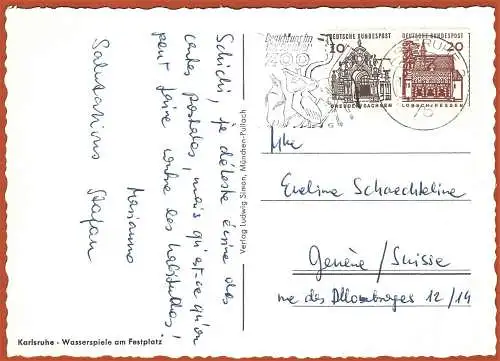 Schichi, je déteste écrire des
cartes postales, mais qu'est-ce qu'on
peut faire contre les habitudes!
Marianne
Salutations Stefan
Verlag Ludwig Simon, München-Pullach
DEUTSCHE BUNDESPOST
10
DRESDEN/SACHSEN
DEUTSCHE BUNDESPOST
20
LORSCH/HESSEN
Eveline Schaechteline
Genève / Suisse
rue des Allobroges 12/14
Karlsruhe - Wasserspiele am Festplatz